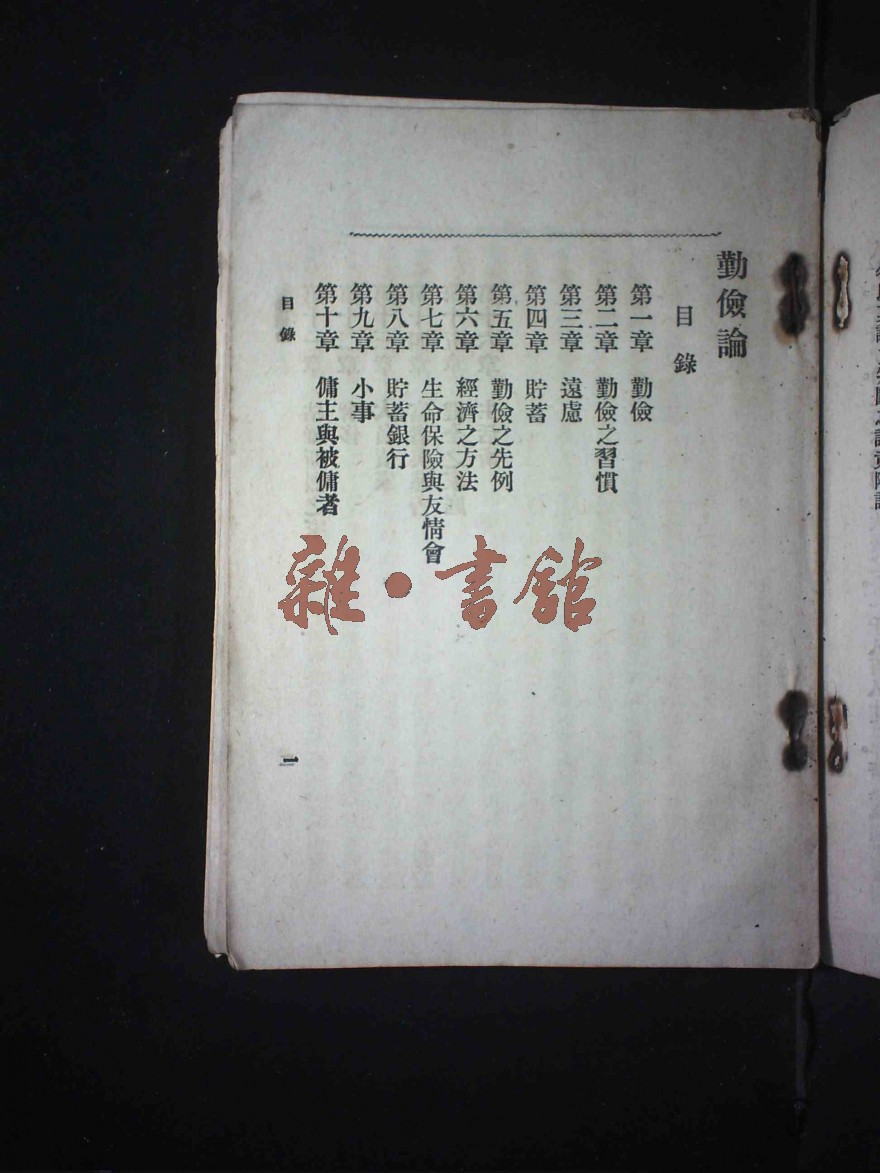 勤儉論
目錄
第一章 勤儉
第二章 勤儉之習慣
第三章 遠慮
第四章 貯蓄
第五章 勤儉之先例
第六章 經濟之方法
第七章 生命保險與友情會
第八章 貯蓄銀行
第九章 小事
第十章 傭主與被傭者
目錄
一
雜·書館